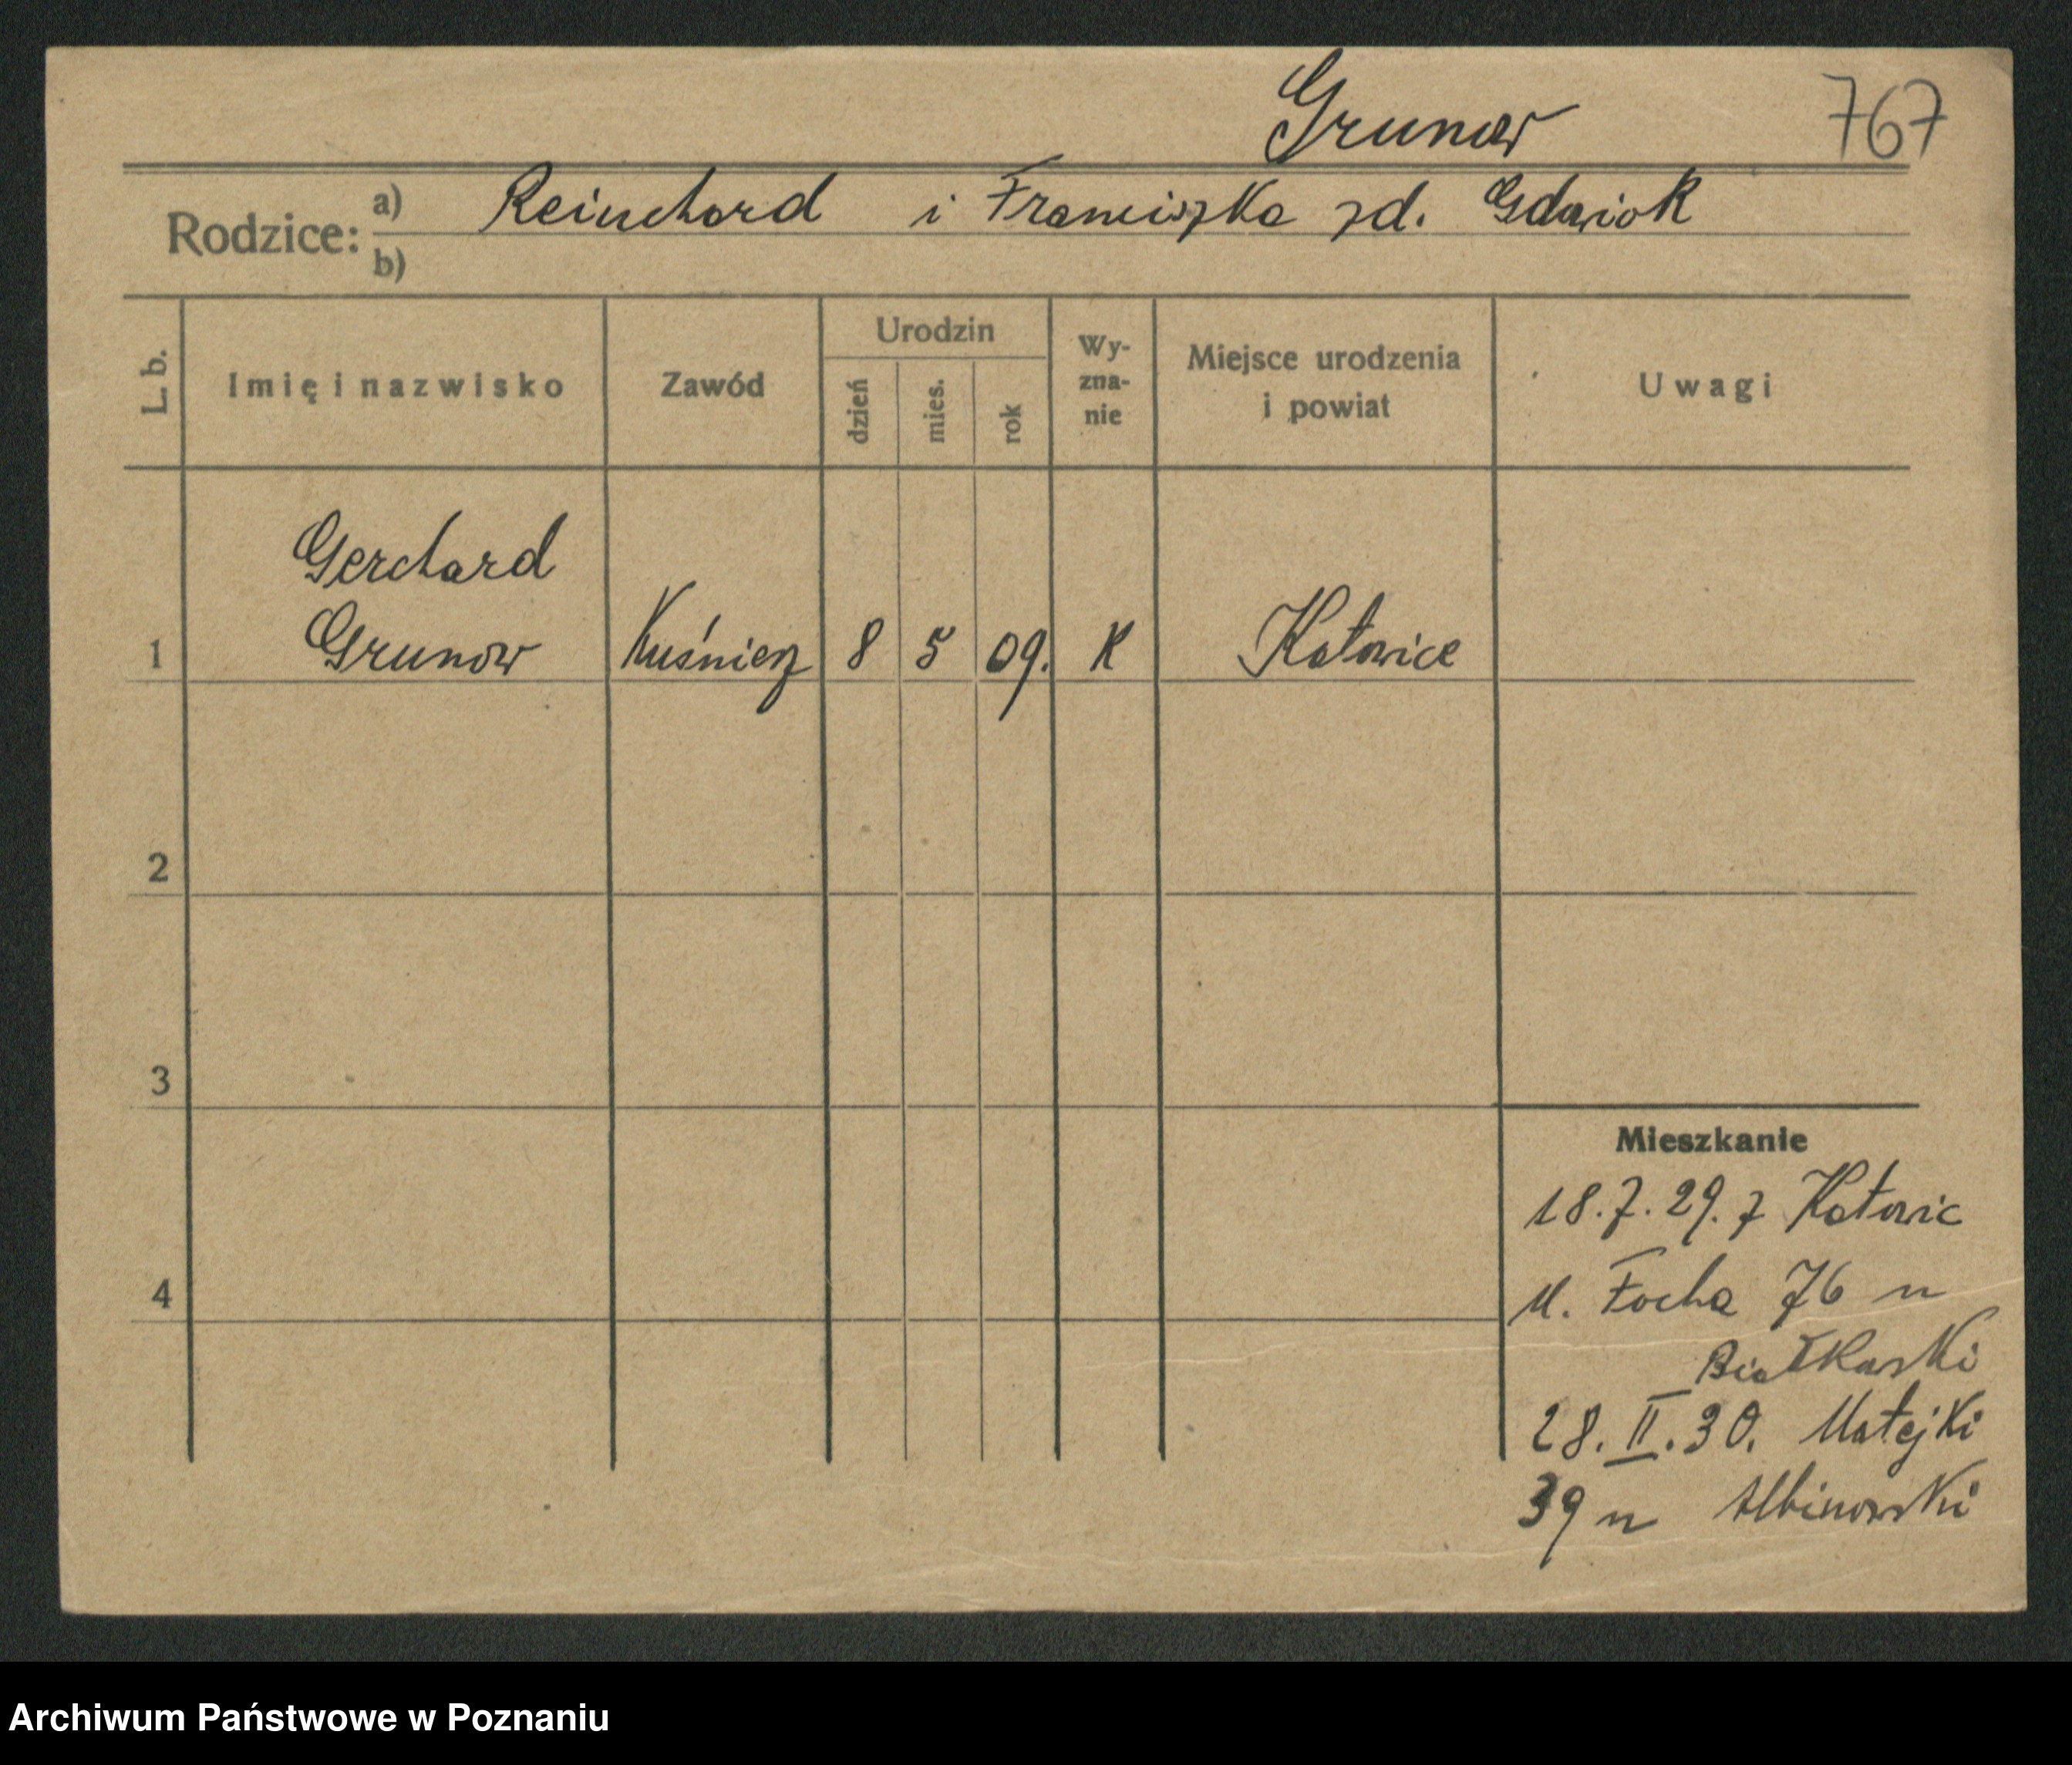 Grunow 767
Rodzice: a) Reinchard i Franciszka zd. Gdawiok
b)
L. b. Imię i nazwisko Zawód Urodzin dzień mies. rok Wy-zna-nie Miejsce urodzenia i powiat Uwagi
Gerchard
1 Grunow Kuśnierz 8 5 09. K Katowice
2
3
Mieszkanie
18.7.29. z Katowic
4
ul. Focha 76 u
Białkaski
28. II. 30. Matejki
39 u Albinowski
Archiwum Państwowe w Poznaniu